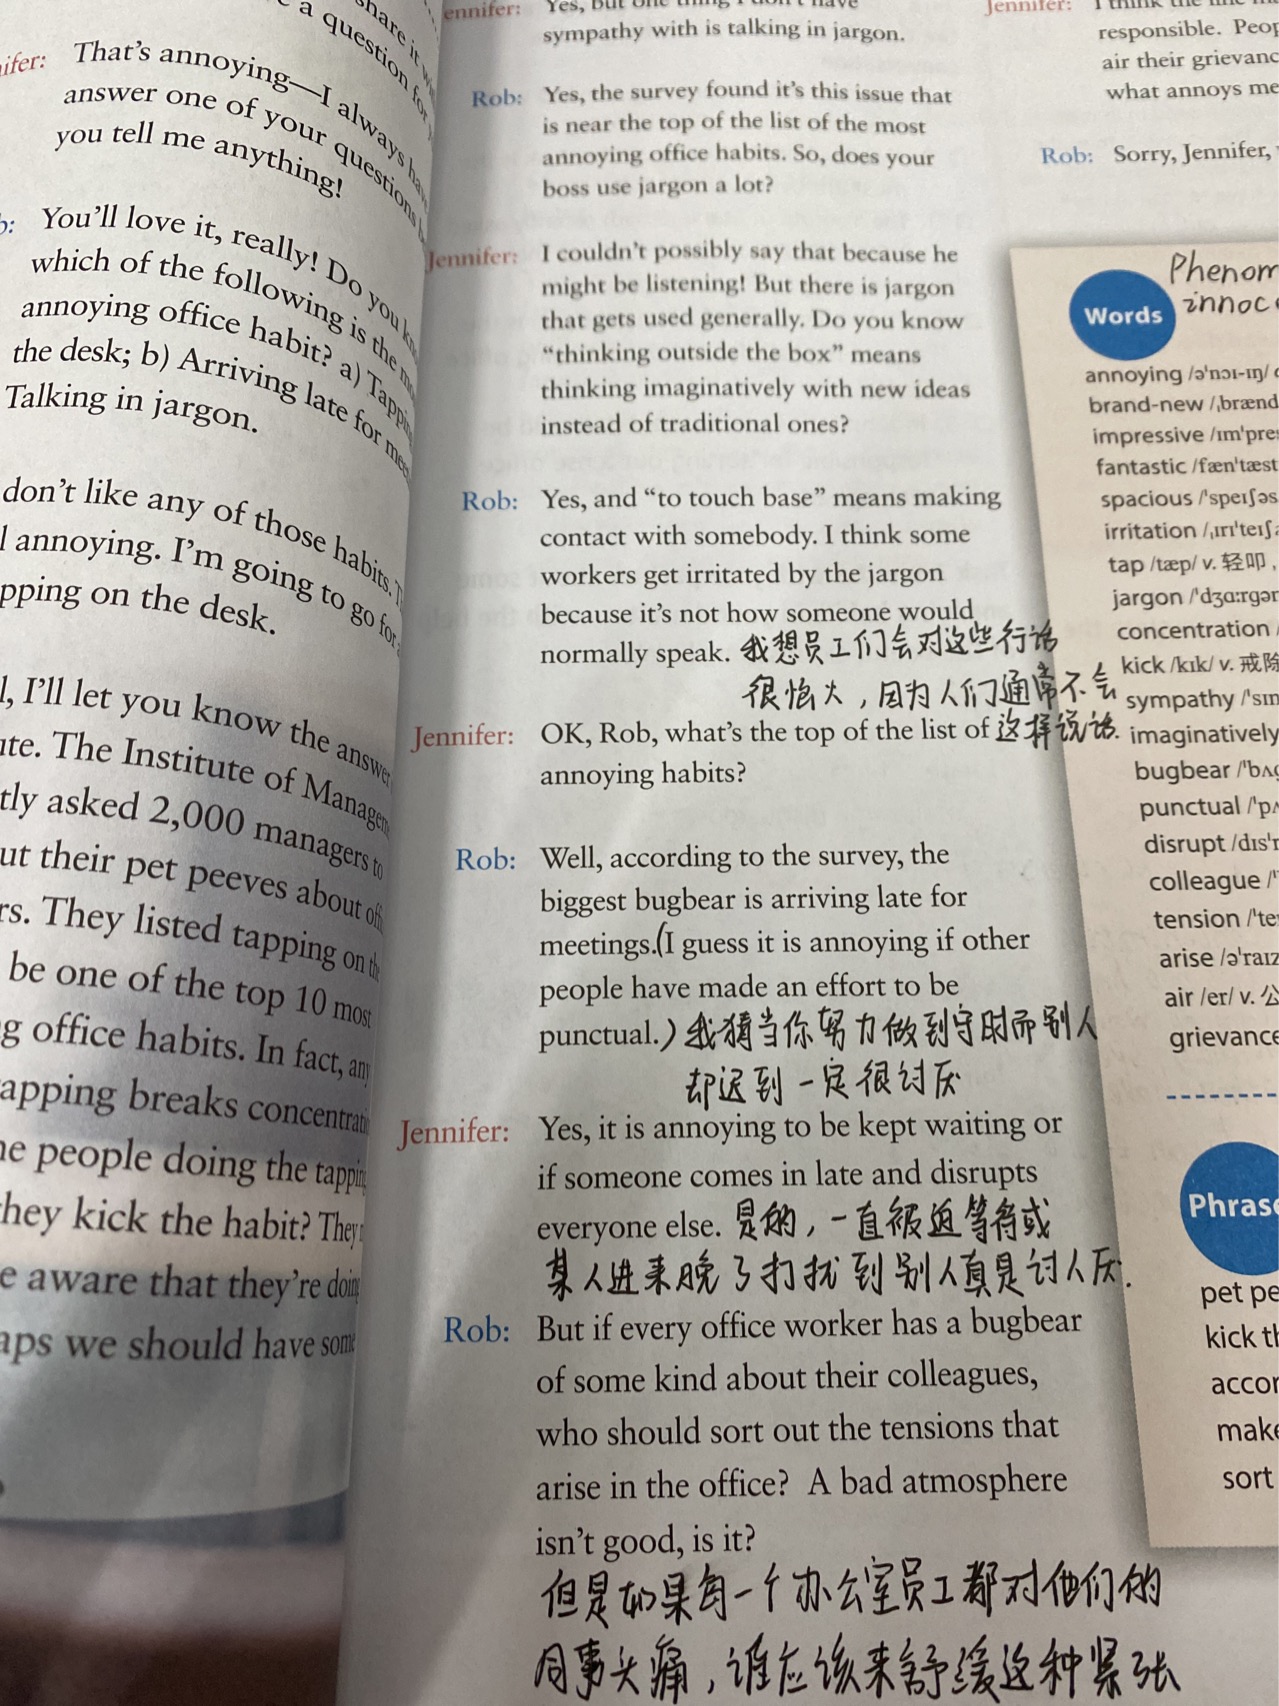 share it
a question for
That's annoying—I always
answer one of your questions
you tell me anything!
You'll love it, really! Do you
which of the following is the
annoying office habit? a) Tapping
the desk; b) Arriving late for
Talking in jargon.
don't like any of those habits.
annoying. I'm going to go for
on the desk.
I'll let you know the answer
The Institute of
asked 2,000 managers to
their pet peeves about
They listed tapping on
be one of the top 10 most
office habits. In fact, any
breaks
people doing the
they kick the habit? They
aware that they're doing
we should have some
Jennifer: Yes, but one thing I don't have
sympathy with is talking in jargon.
Rob: Yes, the survey found it's this issue that
is near the top of the list of the most
annoying office habits. So, does your
boss use jargon a lot?
Jennifer: I couldn't possibly say that because he
might be listening! But there is jargon
that gets used generally. Do you know
“thinking outside the box” means
thinking imaginatively with new ideas
instead of traditional ones?
Rob: Yes, and “to touch base” means making
contact with somebody. I think some
workers get irritated by the jargon
because it's not how someone would
normally speak. 我想员工们会对这些行话
很恼火，因为人们通常不会
Jennifer: OK, Rob, what's the top of the list of 这样说话.
annoying habits?
Rob: Well, according to the survey, the
biggest bugbear is arriving late for
meetings.(I guess it is annoying if other
people have made an effort to be
punctual.) 我猜当你努力做到守时而别人
却迟到一定很讨厌
Jennifer: Yes, it is annoying to be kept waiting or
if someone comes in late and disrupts
everyone else. 是的，一直被迫等待或
某人进来晚了打扰到别人真是讨人厌.
Rob: But if every office worker has a bugbear
of some kind about their colleagues,
who should sort out the tensions that
arise in the office? A bad atmosphere
isn't good, is it?
但是如果每一个办公室员工都对他们的
同事头痛，谁应该来舒缓这种紧张
Jennifer: I think the
responsible.
air their
what annoys me
Rob: Sorry, Jennifer,
Words
annoying /əˈnɔɪ-ɪŋ/
brand-new
impressive
fantastic
spacious
irritation
tap /tæp/ v. 轻叩，
jargon
concentration
kick /kɪk/ v. 戒除
sympathy
imaginatively
bugbear
punctual
disrupt
colleague
tension
arise
air /er/ v. 公
grievance
pet
kick
sort